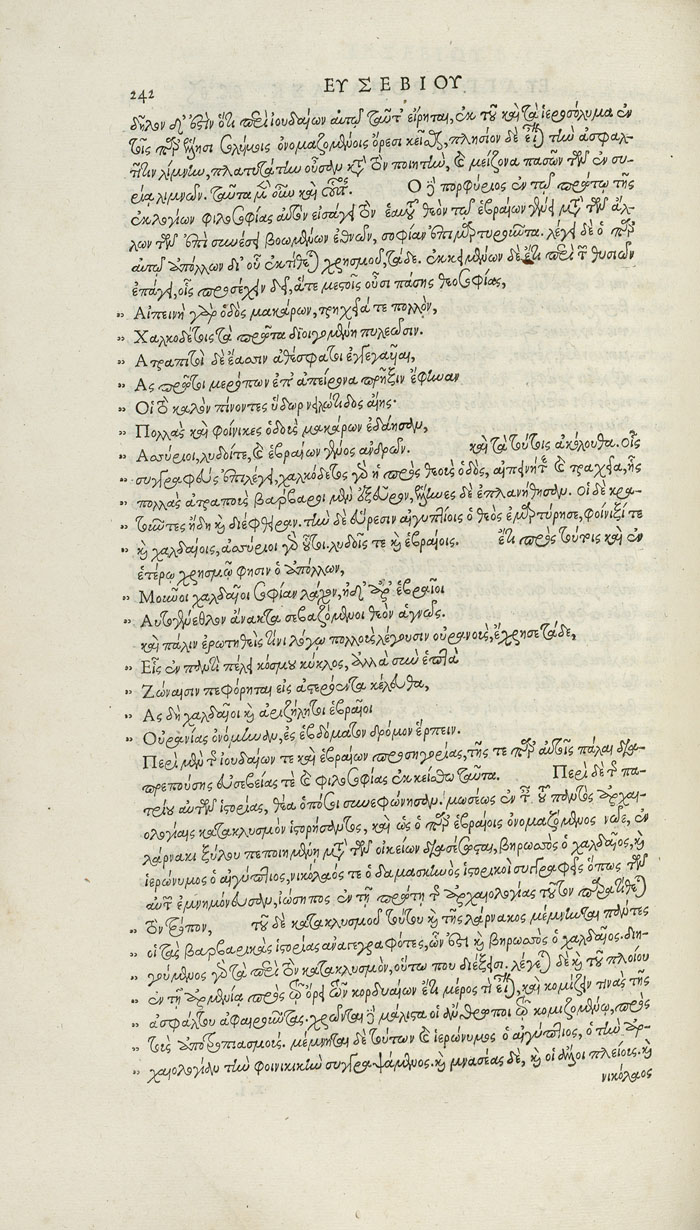 242
ΕΥΣΕΒΙΟΥ
δῆλον δ' ἐστὶν ὅτι περὶ ἰουδαίων αὐτῷ ταῦτ' εἴρηται, ἐκ τοῦ καὶ τὰ ἱεροσόλυμα ἐν
τοῖς παρ' ἕλλησι σολύμοις ὀνομαζομένοις ὄρεσι κεῖσθαι, πλησίον δὲ εἶναι τὴν ἀσφαλ-
τῖτιν λίμνην, πλατυτάτην οὖσαν κατὰ τὸν ποιητὴν, καὶ μείζονα πασῶν τῶν ἐν συ-
ρίᾳ λιμνῶν. ταῦτα μὲν οὖν καὶ οὗτος. Ο δὲ πορφύριος ἐν τῷ πρώτῳ τῆς
ἐκ λογίων φιλοσοφίας αὐτὸν εἰσάγει τὸν ἑαυτοῦ θεὸν τῷ ἑβραίων γένει μετὰ τῶν ἄλ-
λων τῶν ἐπὶ συνέσει βοωμένων ἐθνῶν, σοφίαν ἐπιμαρτυροῦντα. λέγει δὲ ὁ παρ'
αὐτῷ ἀπόλλων δι' οὗ ἐκτίθεται χρησμοῦ, τάδε. ἐκκειμένων δὲ ἔτι περὶ τῶν θυσιῶν
ἐπάγει, οἷς προσέχειν δεῖ, ἅτε μεστοῖς οὖσι πάσης θεοσοφίας,
„ Αἰπεινὴ γὰρ ὁδὸς μακάρων, τρηχεῖά τε πολλὸν,
„ Χαλκοδέτοις τὰ πρῶτα διοιγομένη πυλεῶσιν.
„ Ατραπιτοὶ δὲ ἔασιν ἀθέσφατοι ἐγγεγαυῖαι,
„ Ας πρῶτοι μερόπων ἐπ' ἀπείρονα πρῆξιν ἔφηναν
„ Οἱ τὸ καλὸν πίνοντες ὕδωρ νειλώτιδος αἴης·
„ Πολλὰς καὶ φοίνικες ὁδοὺς μακάρων ἐδάησαν,
„ Ασύριοι, λυδοί τε, καὶ ἑβραίων γένος ἀνδρῶν. καὶ τὰ τούτοις ἀκόλουθα. Οἷς
„ συγγραφεὺς ἐπιλέγει, χαλκόδετος γὰρ ἡ πρὸς θεοὺς ὁδὸς, αἰπεινή τε καὶ τραχεῖα, ἧς
„ πολλὰς ἀτραποὺς βάρβαροι μὲν ἐξεῦρον, ἕλληνες δὲ ἐπλανήθησαν. Οἱ δὲ κρα-
„ τοῦντες ἤδη καὶ διέφθειραν. τὴν δὲ εὕρεσιν αἰγυπτίοις ὁ θεὸς ἐμαρτύρησε, φοίνιξί τε
„ καὶ χαλδαίοις, ἀσύριοι γὰρ οὗτοι. λυδοῖς τε καὶ ἑβραίοις. ἔτι πρὸς τούτοις καὶ ἐν
ἑτέρῳ χρησμῷ φησιν ὁ ἀπόλλων,
„ Μοῦνοι χαλδαῖοι σοφίαν λάχον, ἠδ' ἄρ' ἑβραῖοι
„ Αὐτογένεθλον ἄνακτα σεβαζόμενοι θεὸν ἁγνῶς.
καὶ πάλιν ἐρωτηθεὶς τίνι λόγῳ πολλοὺς λέγουσιν οὐρανοὺς, ἔχρησε τάδε,
„ Εἷς ἐν παντὶ πέλει κόσμου κύκλος, ἀλλὰ σὺν ἑπτὰ
„ Ζώναισιν πεφόρηται εἰς ἀστερόεντα κέλευθα,
„ Ας δὴ χαλδαῖοι καὶ ἀριζήλητοι ἑβραῖοι
„ Οὐρανίας ὀνόμηναν, ἐς ἑβδόματον δρόμον ἕρπειν.
Περὶ μὲν τῆς ἰουδαίων τε καὶ ἑβραίων προσηγορίας, τῆς τε παρ' αὐτοῖς πάλαι δια-
πρεπούσης εὐσεβείας τὲ καὶ φιλοσοφίας ἐκκείσθω ταῦτα. Περὶ δὲ τῆς πα-
τρίου αὐτῶν ἱστορίας, θέα ὁπόσοι συνεφώνησαν. μωσέως ἐν τῇ τοῦ παντὸς ἀρχαι-
ολογίας κατακλυσμὸν ἱστορήσαντος, καὶ ὡς ὁ παρ' ἑβραίοις ὀνομαζόμενος νῶε, ἐν
λάρνακι ξύλου πεποιημένῃ μετὰ τῶν οἰκείων διασέσωσται, βηρωσσὸς ὁ χαλδαῖος, καὶ
ἱερώνυμος ὁ αἰγύπτιος, νικόλαός τε ὁ δαμασκηνὸς ἱστορικοὶ συγγραφεῖς ὅπως τῶν
αὐτῶν ἐμνημόνευσαν, ἰώσηπος ἐν τῇ πρώτῃ τῆς ἀρχαιολογίας τοῦτον παρατίθεται
„ τὸν τρόπον, τοῦ δὲ κατακλυσμοῦ τούτου καὶ τῆς λάρνακος μέμνηνται πάντες
„ οἱ τὰς βαρβαρικὰς ἱστορίας ἀναγεγραφότες, ὧν ἐστι καὶ βηρωσσὸς ὁ χαλδαῖος. διη-
„ γούμενος γὰρ τὰ περὶ τὸν κατακλυσμὸν, οὕτω που διέξεισι. λέγεται δὲ καὶ τοῦ πλοίου
„ ἐν τῇ ἀρμενίᾳ πρὸς τῷ ὄρει τῶν κορδυαίων ἔτι μέρος τι εἶναι, καὶ κομίζειν τινὰς τῆς
„ ἀσφάλτου ἀφαιροῦντας. χρῶνται δὲ μάλιστα οἱ ἄνθρωποι τῷ κομιζομένῳ, πρὸς
„ τοὺς ἀποτροπιασμούς. μέμνηται δὲ τούτων καὶ ἱερώνυμος ὁ αἰγύπτιος, ὁ τὴν ἀρ-
„ χαιολογίαν τὴν φοινικικὴν συγγραψάμενος. καὶ μνασέας δὲ, καὶ οἱ ἄλλοι πλείους. καὶ
νικόλαος